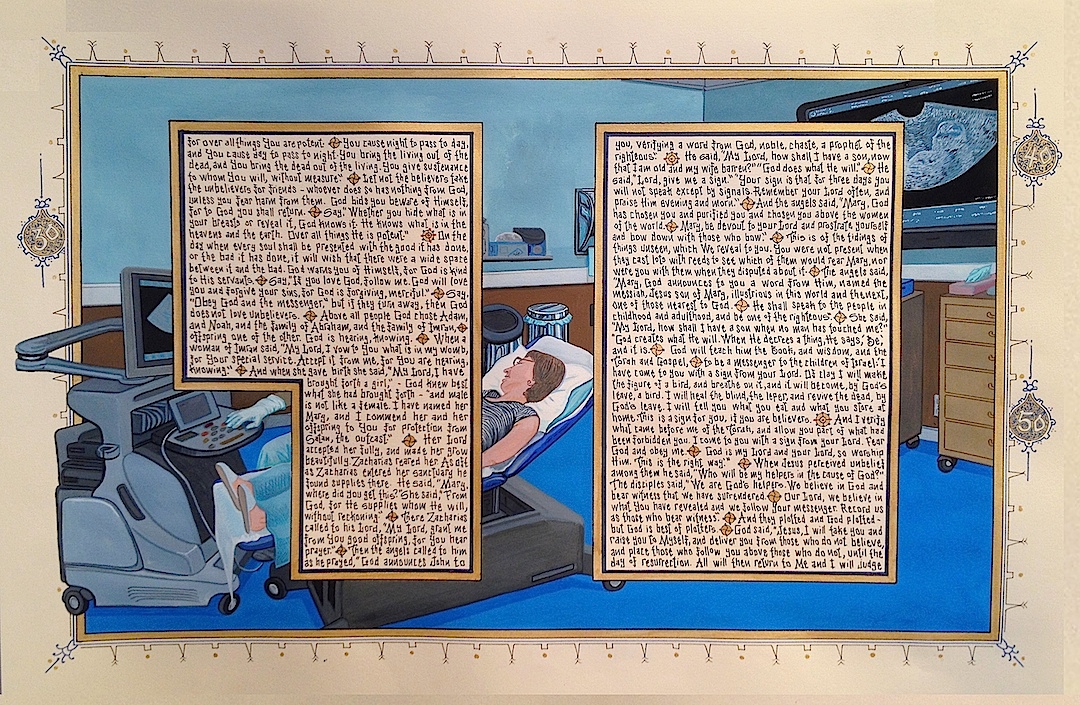 for over all things You are potent. You cause night to pass to day,
and You cause day to pass to night. You bring the living out of the
dead, and You bring the dead out of the living. You give sustenance
to whom You will, without measure." Let not the believers take
the unbelievers for friends - whoever does so has nothing from God,
unless you fear harm from them. God bids you beware of Himself,
for to God you shall return. Say, "Whether you hide what is in
your breasts or reveal it, God knows it. He knows what is in the
heavens and the earth. Over all things He is potent." On the
day when every soul shall be presented with the good it has done,
or the bad it has done, it will wish that there were a wide space
between it and the bad. God warns you of Himself, for God is kind
to His servants. Say, "If you love God, follow me. God will love
you and forgive your sins, for God is forgiving, merciful." Say,
"Obey God and the messenger," but if they turn away, then God
does not love unbelievers. Above all people God chose Adam,
and Noah, and the family of Abraham, and the family of Imran,
offspring one of the other. God is hearing, knowing. When a
woman of Imran said, "My Lord, I vow to You what is in my womb,
for Your special service. Accept it from me, for You are hearing,
knowing." And when she gave birth she said, "My Lord, I have
brought forth a girl," - God knew best
what she had brought forth - "and male
is not like a female. I have named her
Mary, and I commend her and her
offspring to You for protection from
Satan, the outcast." Her Lord
accepted her fully, and made her grow
beautifully. Zacharias reared her. As oft
as Zacharias entered her sanctuary he
found supplies there. He said, "Mary,
where did you get this?" She said, "From
God, for He supplies whom He will,
without reckoning." There Zacharias
called to his Lord, "My Lord, grant me
from You good offspring, for You hear
prayer." Then the angels called to him
as he prayed, "God announces John to
you, verifying a word from God, noble, chaste, a prophet of the
righteous." He said, "My Lord, how shall I have a son, now
that I am old and my wife barren?" "God does what He will." He
said, "Lord, give me a sign." "Your sign is that for three days you
will not speak except by signals. Remember your Lord often, and
praise Him evening and morn." And the angels said, "Mary, God
has chosen you and purified you and chosen you above the women
of the world. Mary, be devout to your Lord and prostrate yourself
and bow down with those who bow." This is of the tidings of
things unseen, which We reveal to you. You were not present when
they cast lots with reeds to see which of them would rear Mary, nor
were you with them when they disputed about it. The angels said,
"Mary, God announces to you a word from Him, named the
messiah, Jesus son of Mary, illustrious in this world and the next,
one of those nearest to God. He shall speak to the people in
childhood and adulthood, and be one of the righteous." She said,
"My Lord, how shall I have a son when no man has touched me?"
God creates what He will. When He decrees a thing, He says, 'Be,'
and it is. God will teach him the Book, and wisdom, and the
Torah and Gospel, to be a messenger to the children of Israel: 'I
have come to you with a sign from your Lord. Of clay I will make
the figure of a bird, and breathe on it, and it will become, by God's
leave, a bird. I will heal the blind, the leper, and revive the dead, by
God's leave. I will tell you what you eat and what you store at
home. This is a sign for you, if you are believers. And I verify
what came before me of the Torah, and allow you part of what had
been forbidden you. I come to you with a sign from your Lord. Fear
God and obey me. God is my Lord and your Lord, so worship
Him. This is the right way.'" When Jesus perceived unbelief
among them he said, "Who will be my helpers in the cause of God?"
The disciples said, "We are God's helpers. We believe in God and
bear witness that we have surrendered. Our Lord, we believe in
what You have revealed and we follow Your messenger. Record us
as those who bear witness." And they plotted and God plotted -
but God is best of plotters. God said, "Jesus, I will take you and
raise you to Myself, and deliver you from those who do not believe,
and place those who follow you above those who do not, until the
day of resurrection. All will then return to Me and I will judge
30
40
50